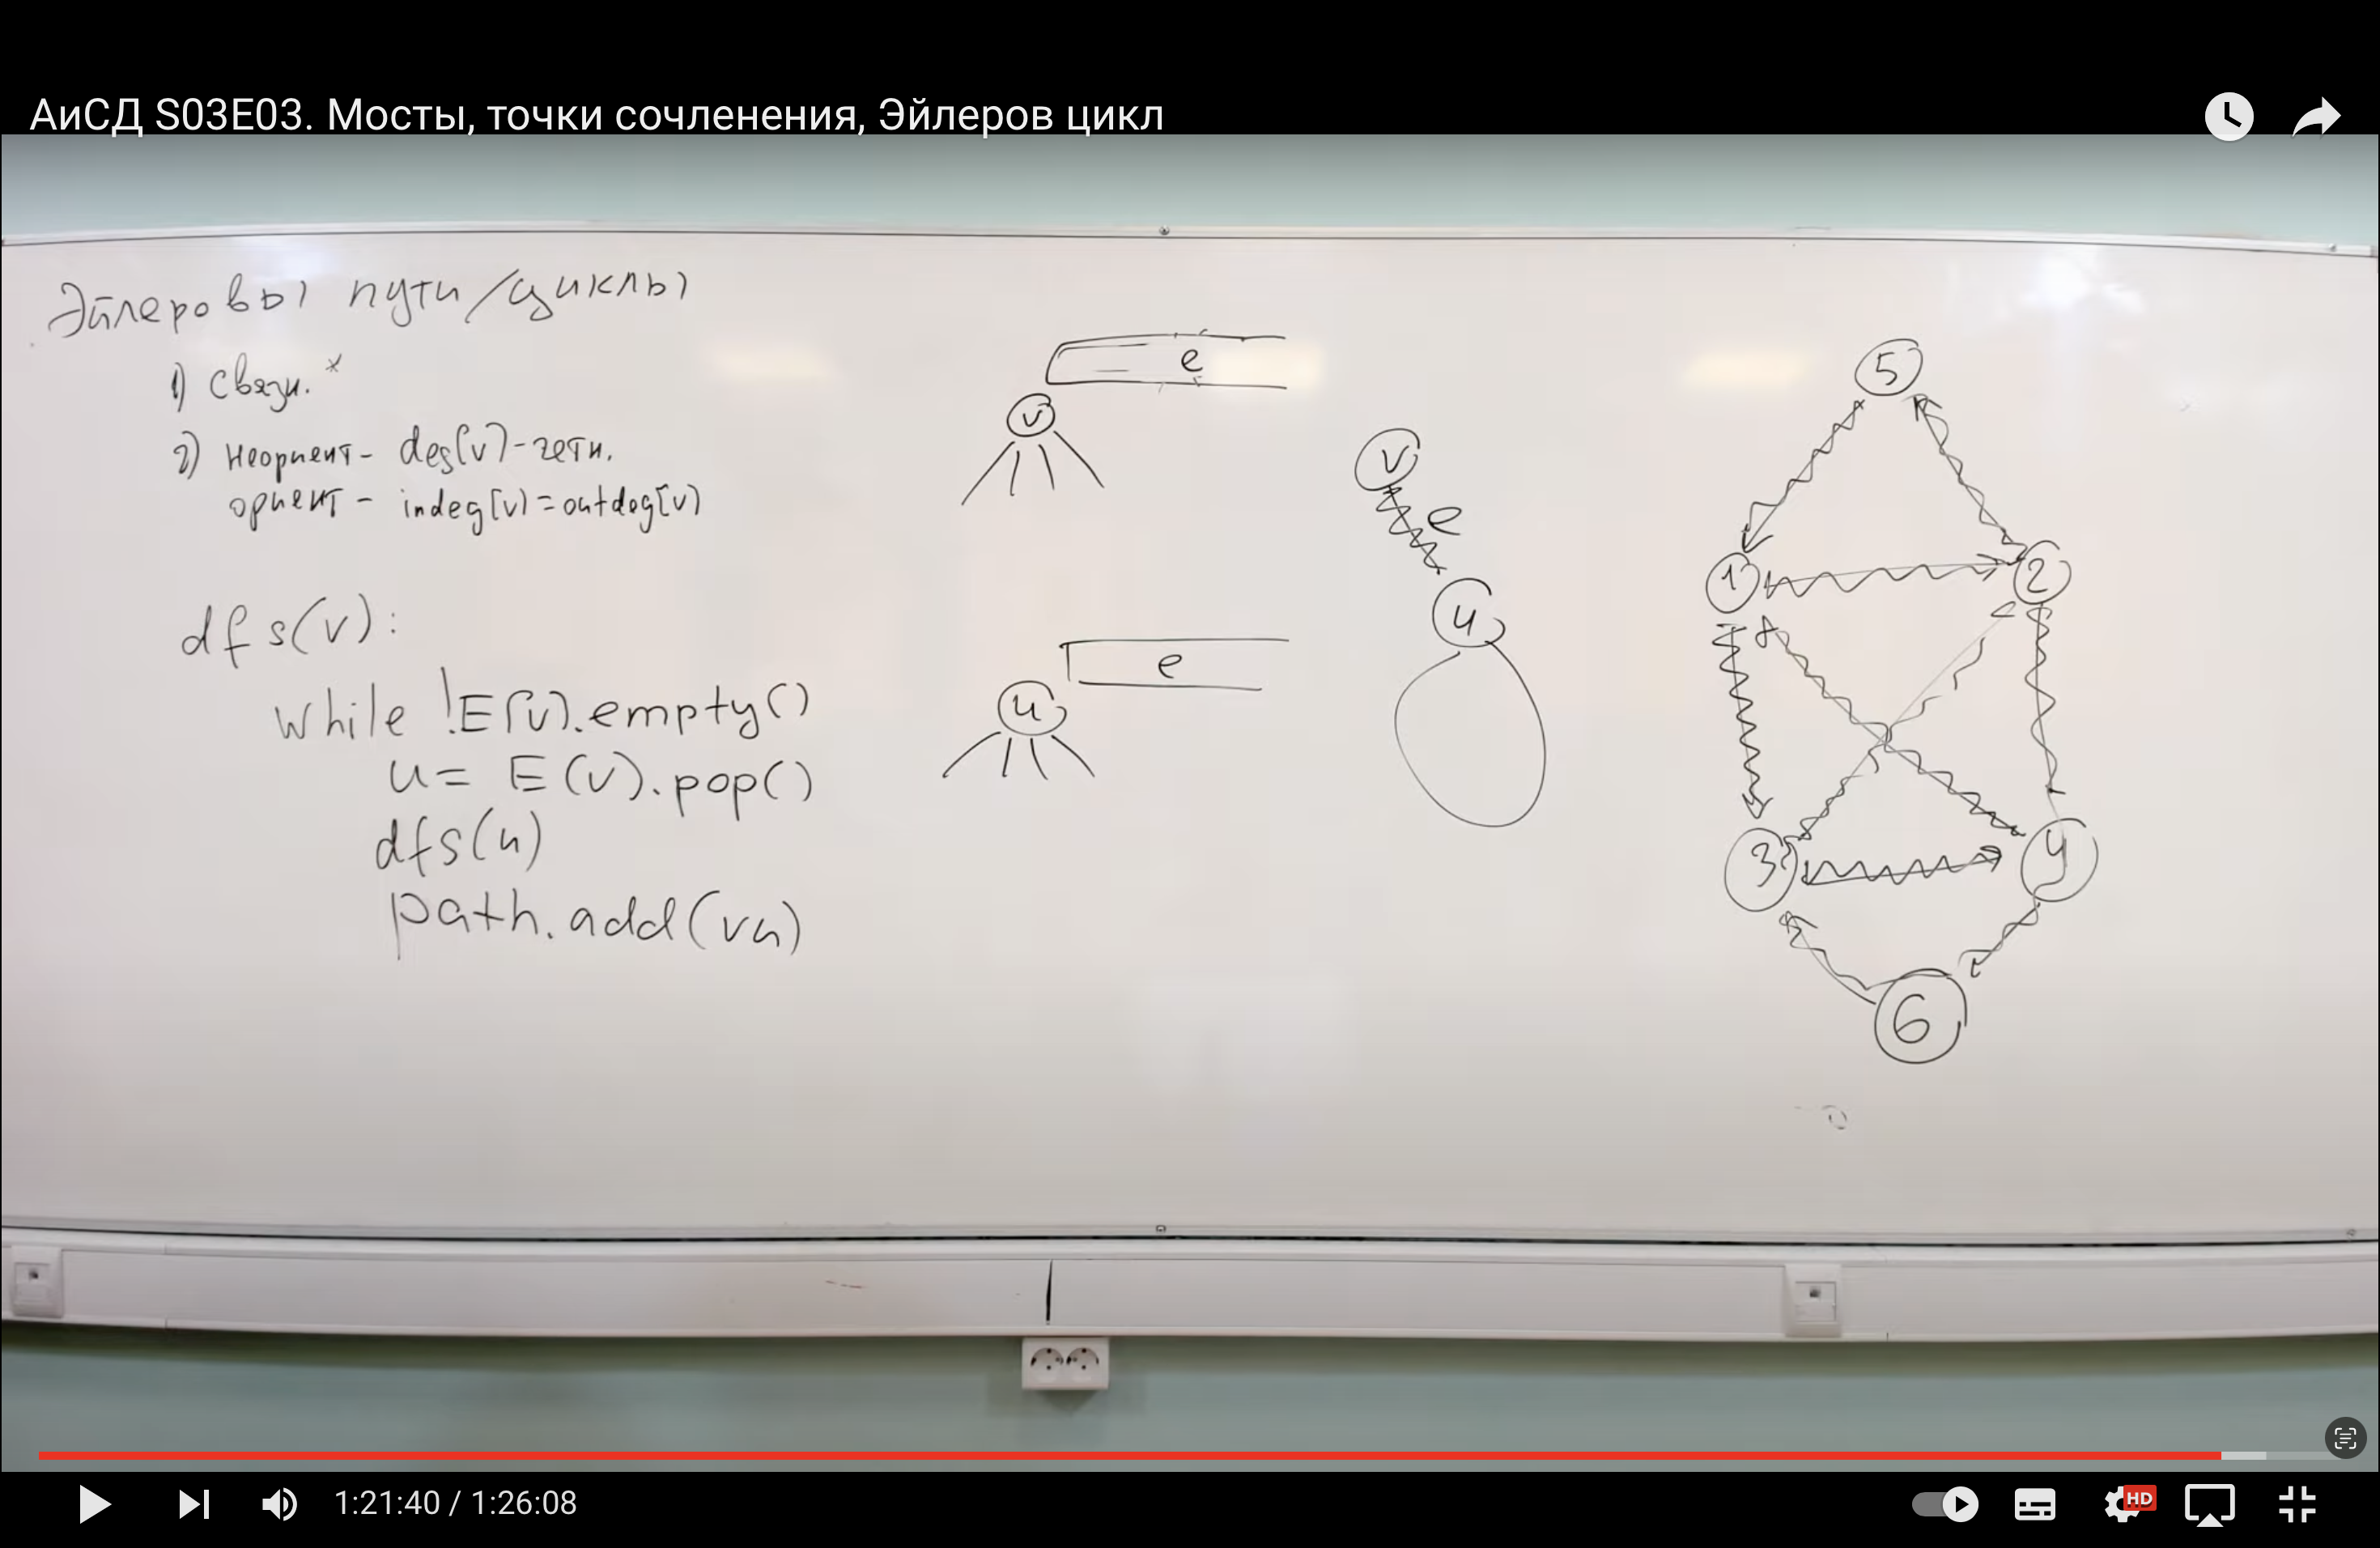 АиСД S03E03. Мосты, точки сочленения, Эйлеров цикл
Эйлеровы пути/циклы
1) связн.*
2) неориент - deg(v) - четн.
ориент - indeg(v) = outdeg(v)
dfs(v):
while !E(v).empty()
u = E(v).pop()
dfs(u)
path.add(vu)
e
v
e
u
v
e
u
5
1
2
3
4
6
1:21:40 / 1:26:08
HD